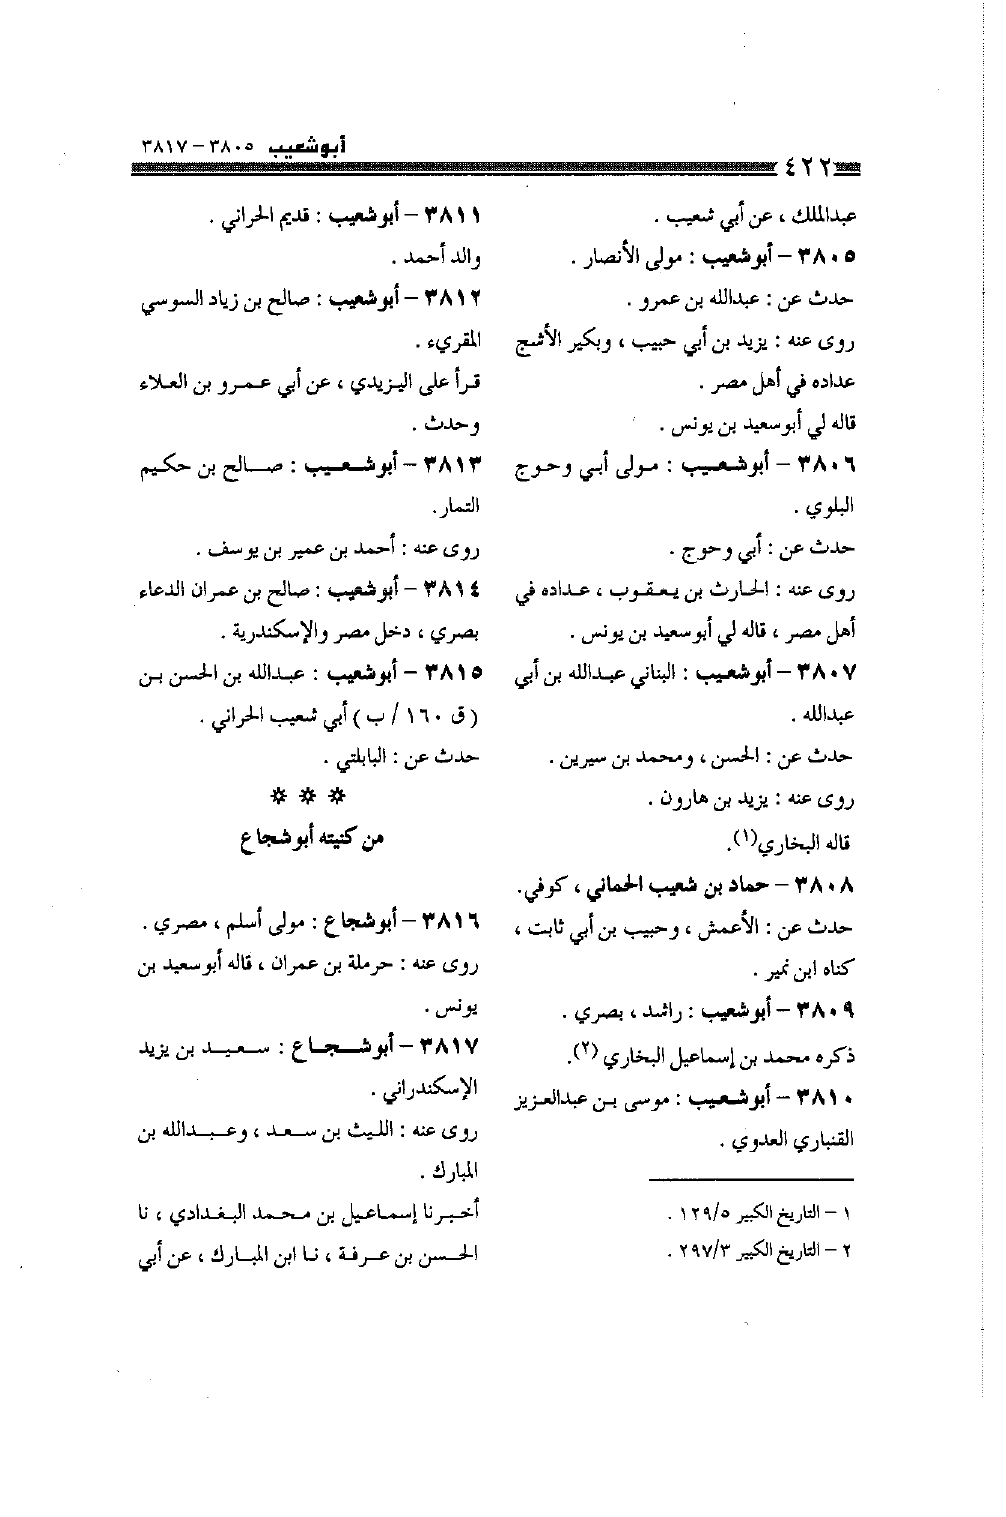 أبوشعيب ٣٨٠٥ – ٣٨١٧
٤٢٢
عبدالملك ، عن أبي شعيب .
٣٨٠٥ – أبوشعيب : مولى الأنصار .
حدث عن : عبدالله بن عمرو .
روى عنه : يزيد بن أبي حبيب ، وبكير الأشج
عداده في أهل مصر .
قاله لي أبوسعيد بن يونس .
٣٨٠٦ – أبوشعيب : مولى أبي وحوج
البلوي .
حدث عن : أبي وحوج .
روى عنه : الحارث بن يعقوب ، عداده في
أهل مصر ، قاله لي أبوسعيد بن يونس .
٣٨٠٧ – أبوشعيب : البناني عبدالله بن أبي
عبدالله .
حدث عن : الحسن ، ومحمد بن سيرين .
روى عنه : يزيد بن هارون .
قاله البخاري(١).
٣٨٠٨ – حماد بن شعيب الحماني ، كوفي.
حدث عن : الأعمش ، وحبيب بن أبي ثابت ،
كناه ابن نمير .
٣٨٠٩ – أبوشعيب : راشد ، بصري .
ذكره محمد بن إسماعيل البخاري (٢).
٣٨١٠ – أبوشعيب : موسى بن عبدالعزيز
القنباري العدوي .
١ – التاريخ الكبير ١٢٩/٥ .
٢ – التاريخ الكبير ٢٩٧/٣ .
٣٨١١ – أبوشعيب : قديم الحراني .
والد أحمد .
٣٨١٢ – أبوشعيب : صالح بن زياد السوسي
المقريء .
قرأ على اليزيدي ، عن أبي عمرو بن العلاء
وحدث .
٣٨١٣ – أبوشعيب : صالح بن حكيم
التمار.
روى عنه : أحمد بن عمير بن يوسف .
٣٨١٤ – أبوشعيب : صالح بن عمران الدعاء
بصري ، دخل مصر والإسكندرية .
٣٨١٥ – أبوشعيب : عبدالله بن الحسن بن
(ق ١٦٠ / ب) أبي شعيب الحراني .
حدث عن : البابلتي .
* * *
من كنيته أبوشجاع
٣٨١٦ – أبوشجاع : مولى أسلم ، مصري .
روى عنه : حرملة بن عمران ، قاله أبوسعيد بن
يونس .
٣٨١٧ – أبوشجاع : سعيد بن يزيد
الإسكندراني .
روى عنه : الليث بن سعد ، وعبدالله بن
المبارك .
أخبرنا إسماعيل بن محمد البغدادي ، نا
الحسن بن عرفة ، نا ابن المبارك ، عن أبي